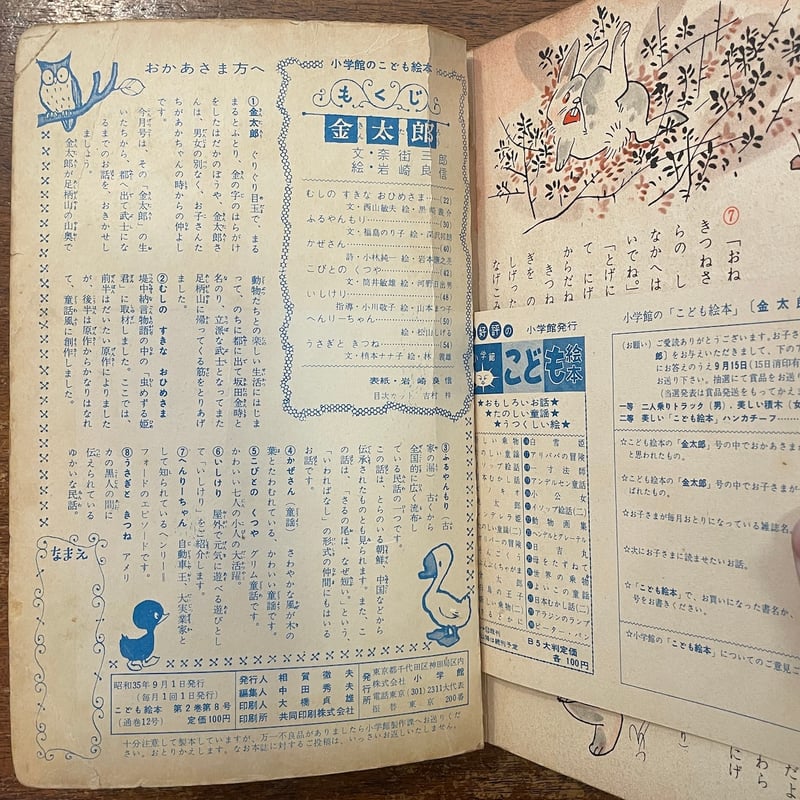 おかあさま方へ
小学館のこども絵本
もくじ
金太郎
文・奈街三郎
絵・岩崎良信
むしの すきな おひめさま……(22)
文・西山敏夫 絵・黒崎義介
ふるやんもり……(30)
文・福島のり子 絵・深沢邦朗
かぜさん……(40)
詩・小林純一 絵・岩本康之亮
こびとの くつや……(42)
文・筒井敏雄 絵・河野日出男
いしけり……(48)
指導・小川敬子 絵・山本まつ子
へんりーちゃん……(50)
絵・松山しげる
うさぎと きつね……(54)
文・槙本ナナ子 絵・林 義雄
表紙・岩崎良信
目次カット 吉村 祥
①金太郎 ぐりぐり目玉で、まる
まるとふとり、金の字のはらがけ
をしたはだかのぼうや、金太郎さ
んは、男女の別なく、お子さんた
ちがあかちゃんの時からの仲よし
です。
今月号は、その「金太郎」の生
いたちから、都へ出て武士にな
るまでのお話を、おきかせし
ましょう。
金太郎が足柄山の山奥で
動物たちとの楽しい生活にはじま
って、のちに都に出て坂田金時と
名のり、立派な武士となってまた
足柄山に帰ってくる筋をとりあげ
ました。
②むしの すきな おひめさま
堤中納言物語の中の「虫めずる姫
君」に取材しました。ここでは、
前半はだいたい原作によりました
が、後半は原作からかなりはなれ
て、童話風に創作しました。
③ふるやんもり 古
家の漏り。古くから
全国的に広く流布し
ている民話の一つです。
この話は、とらのいる朝鮮、中国などから
伝承されたものとも見られます。また、こ
の話は、「さるの尾は、なぜ短い」という、
「いわればなし」の形式の仲間にもはいる
お話です。
④かぜさん（童謡） さわやかな風が木の
葉とたわむれている、かわいい童謡です。
⑤こびとの くつや グリム童話です。
かわいい七人の小人の大活躍。
⑥いしけり 屋外で元気に遊べる遊びとし
て「いしけり」をご紹介します。
⑦へんりーちゃん 自動車王、大実業家と
して知られているヘンリー
フォードのエピソードです。
⑧うさぎと きつね アメリ
カの黒人の間に
伝えられている
ゆかいな民話。
えまなか
昭和35年9月1日発行
(毎月1回1日発行)
こども絵本 第2巻第8号
(通巻12号) 定価100円
発行人 相賀徹夫
編集人 中田秀夫
印刷人 大橋貞雄
印刷所 共同印刷株式会社
発行所
東京都千代田区神田局区内
株式会社 小学館
電話東京(301)2311大代表
振替東京200番
十分注意して製本していますが、万一不良品がありましたら小学館製作課へお送りくだ
さい。おとりかえします。なお本誌に対するご投稿は、いっさいお返しいたしません。
⑦「おね
きつねさ
らの し
なかへは
いでね。」
「とげに
て にげ
からだね
ぎを の
しげった
なげこみ
好評の 小学館発行
小学館
こども絵本
★おもしろいお話★
★たのしい童謡★
★うつくしい絵★
白雪姫
アリババの冒険
一寸法師
アンデルセン童話
小公女
イソップ絵話(二)
動物画集
ヘンゼルとグレーテル
日吉丸
母をたずねて
世界の乗物
よいこの童謡
日本むかし話(二)
アラジンのランプ
ピーター・パン
B5大判定価
各100円
小学館の「こども絵本」〔金太郎
(お願い) ご愛読ありがとうございます。お子さ
郎〕をお与えいただきまして、下の
にお答えのうえ9月15日(15日消印有
お送り下さい。抽選にて賞品をお送
(当選発表は賞品発送をもってかえま
一等 二人乗りトラック(男)、美しい積木(女
二等 美しい「こども絵本」ハンカチーフ……
☆こども絵本の「金太郎」号の中でおかあさまが
と思われたもの。
☆こども絵本の「金太郎」号の中でお子さまが
ばれたもの。
☆お子さまが毎月おとりになっている雑誌名。
☆次にお子さまに読ませたいお話。
☆「こども絵本」で、お買いになった書名か、
号をお書きください。
☆小学館の「こども絵本」についてのご意見ご